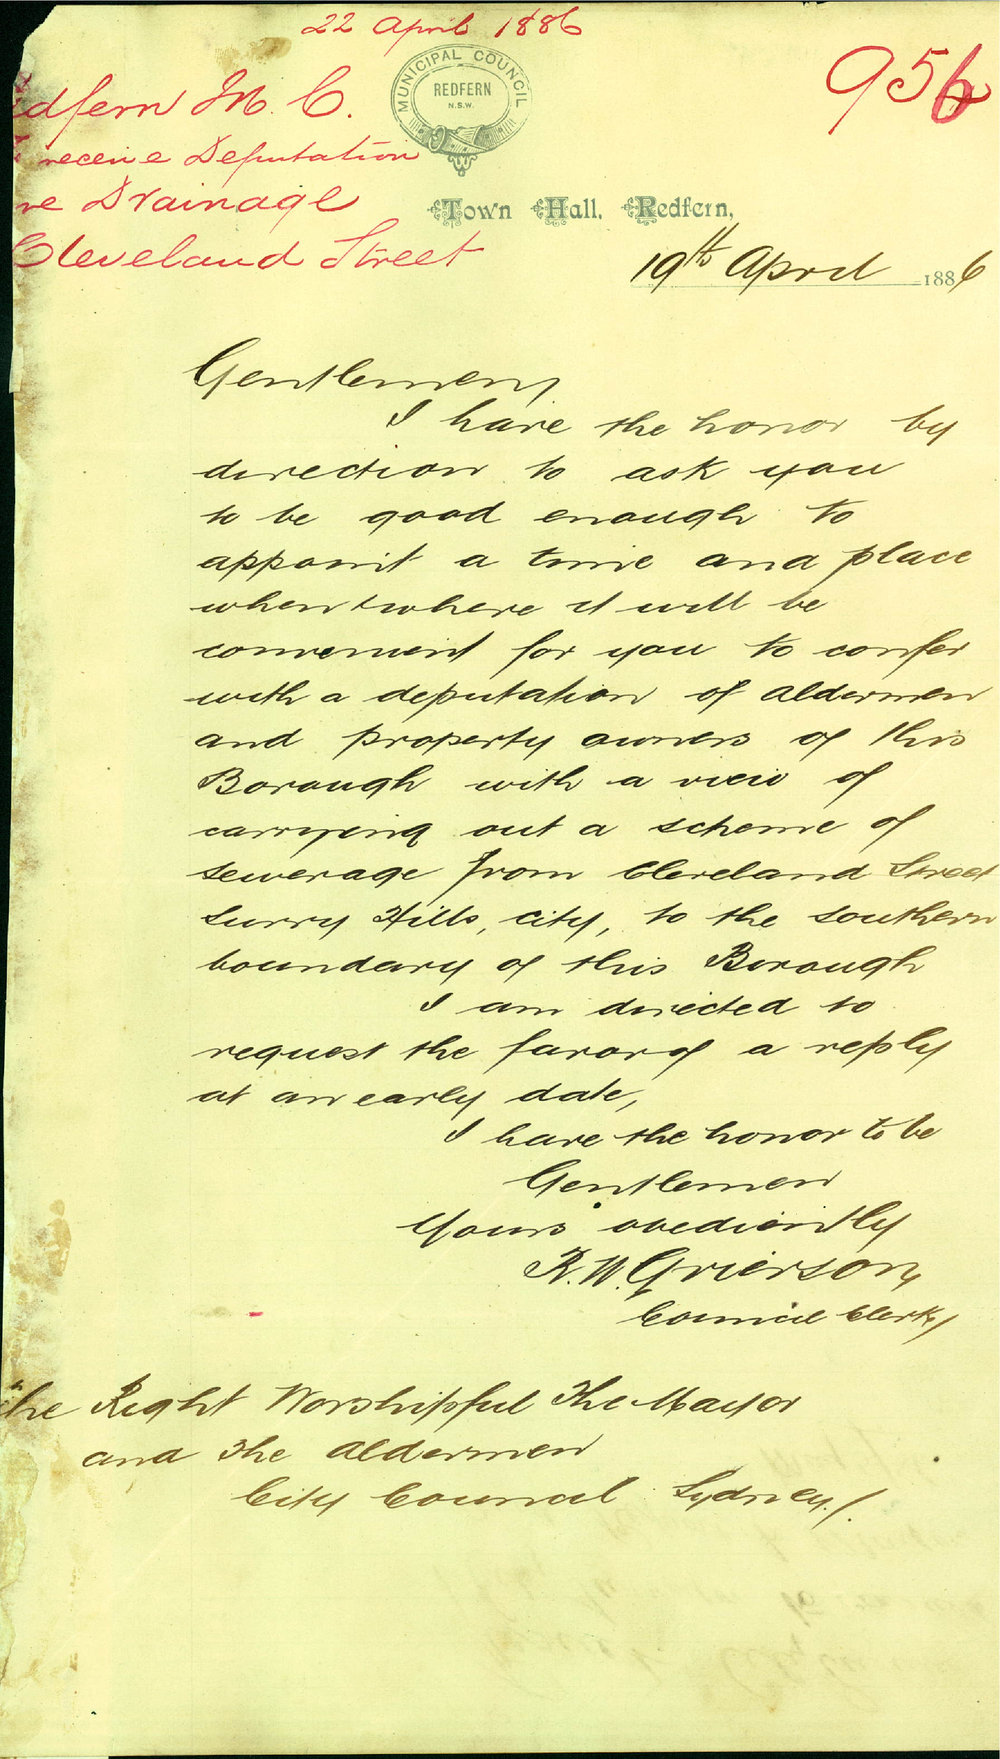 22 April 1886
956
MUNICIPAL COUNCIL
REDFERN
N.S.W.
edfern M. C.
receive Deputation
re Drainage
Cleveland Street
Town Hall, Redfern,
19th April 1886
Gentlemen,
I have the honor by
direction to ask you
to be good enough to
appoint a time and place
when & where it will be
convenient for you to confer
with a deputation of Aldermen
and property owners of this
Borough with a view of
carrying out a scheme of
sewerage from Cleveland Street
Surry Hills, City, to the Southern
boundary of this Borough
I am directed to
request the favor of a reply
at an early date,
I have the honor to be
Gentlemen
Yours obediently
R. W. Grierson,
Council Clerk/
The Right Worshipful The Mayor
and The Aldermen
City Council Sydney./.